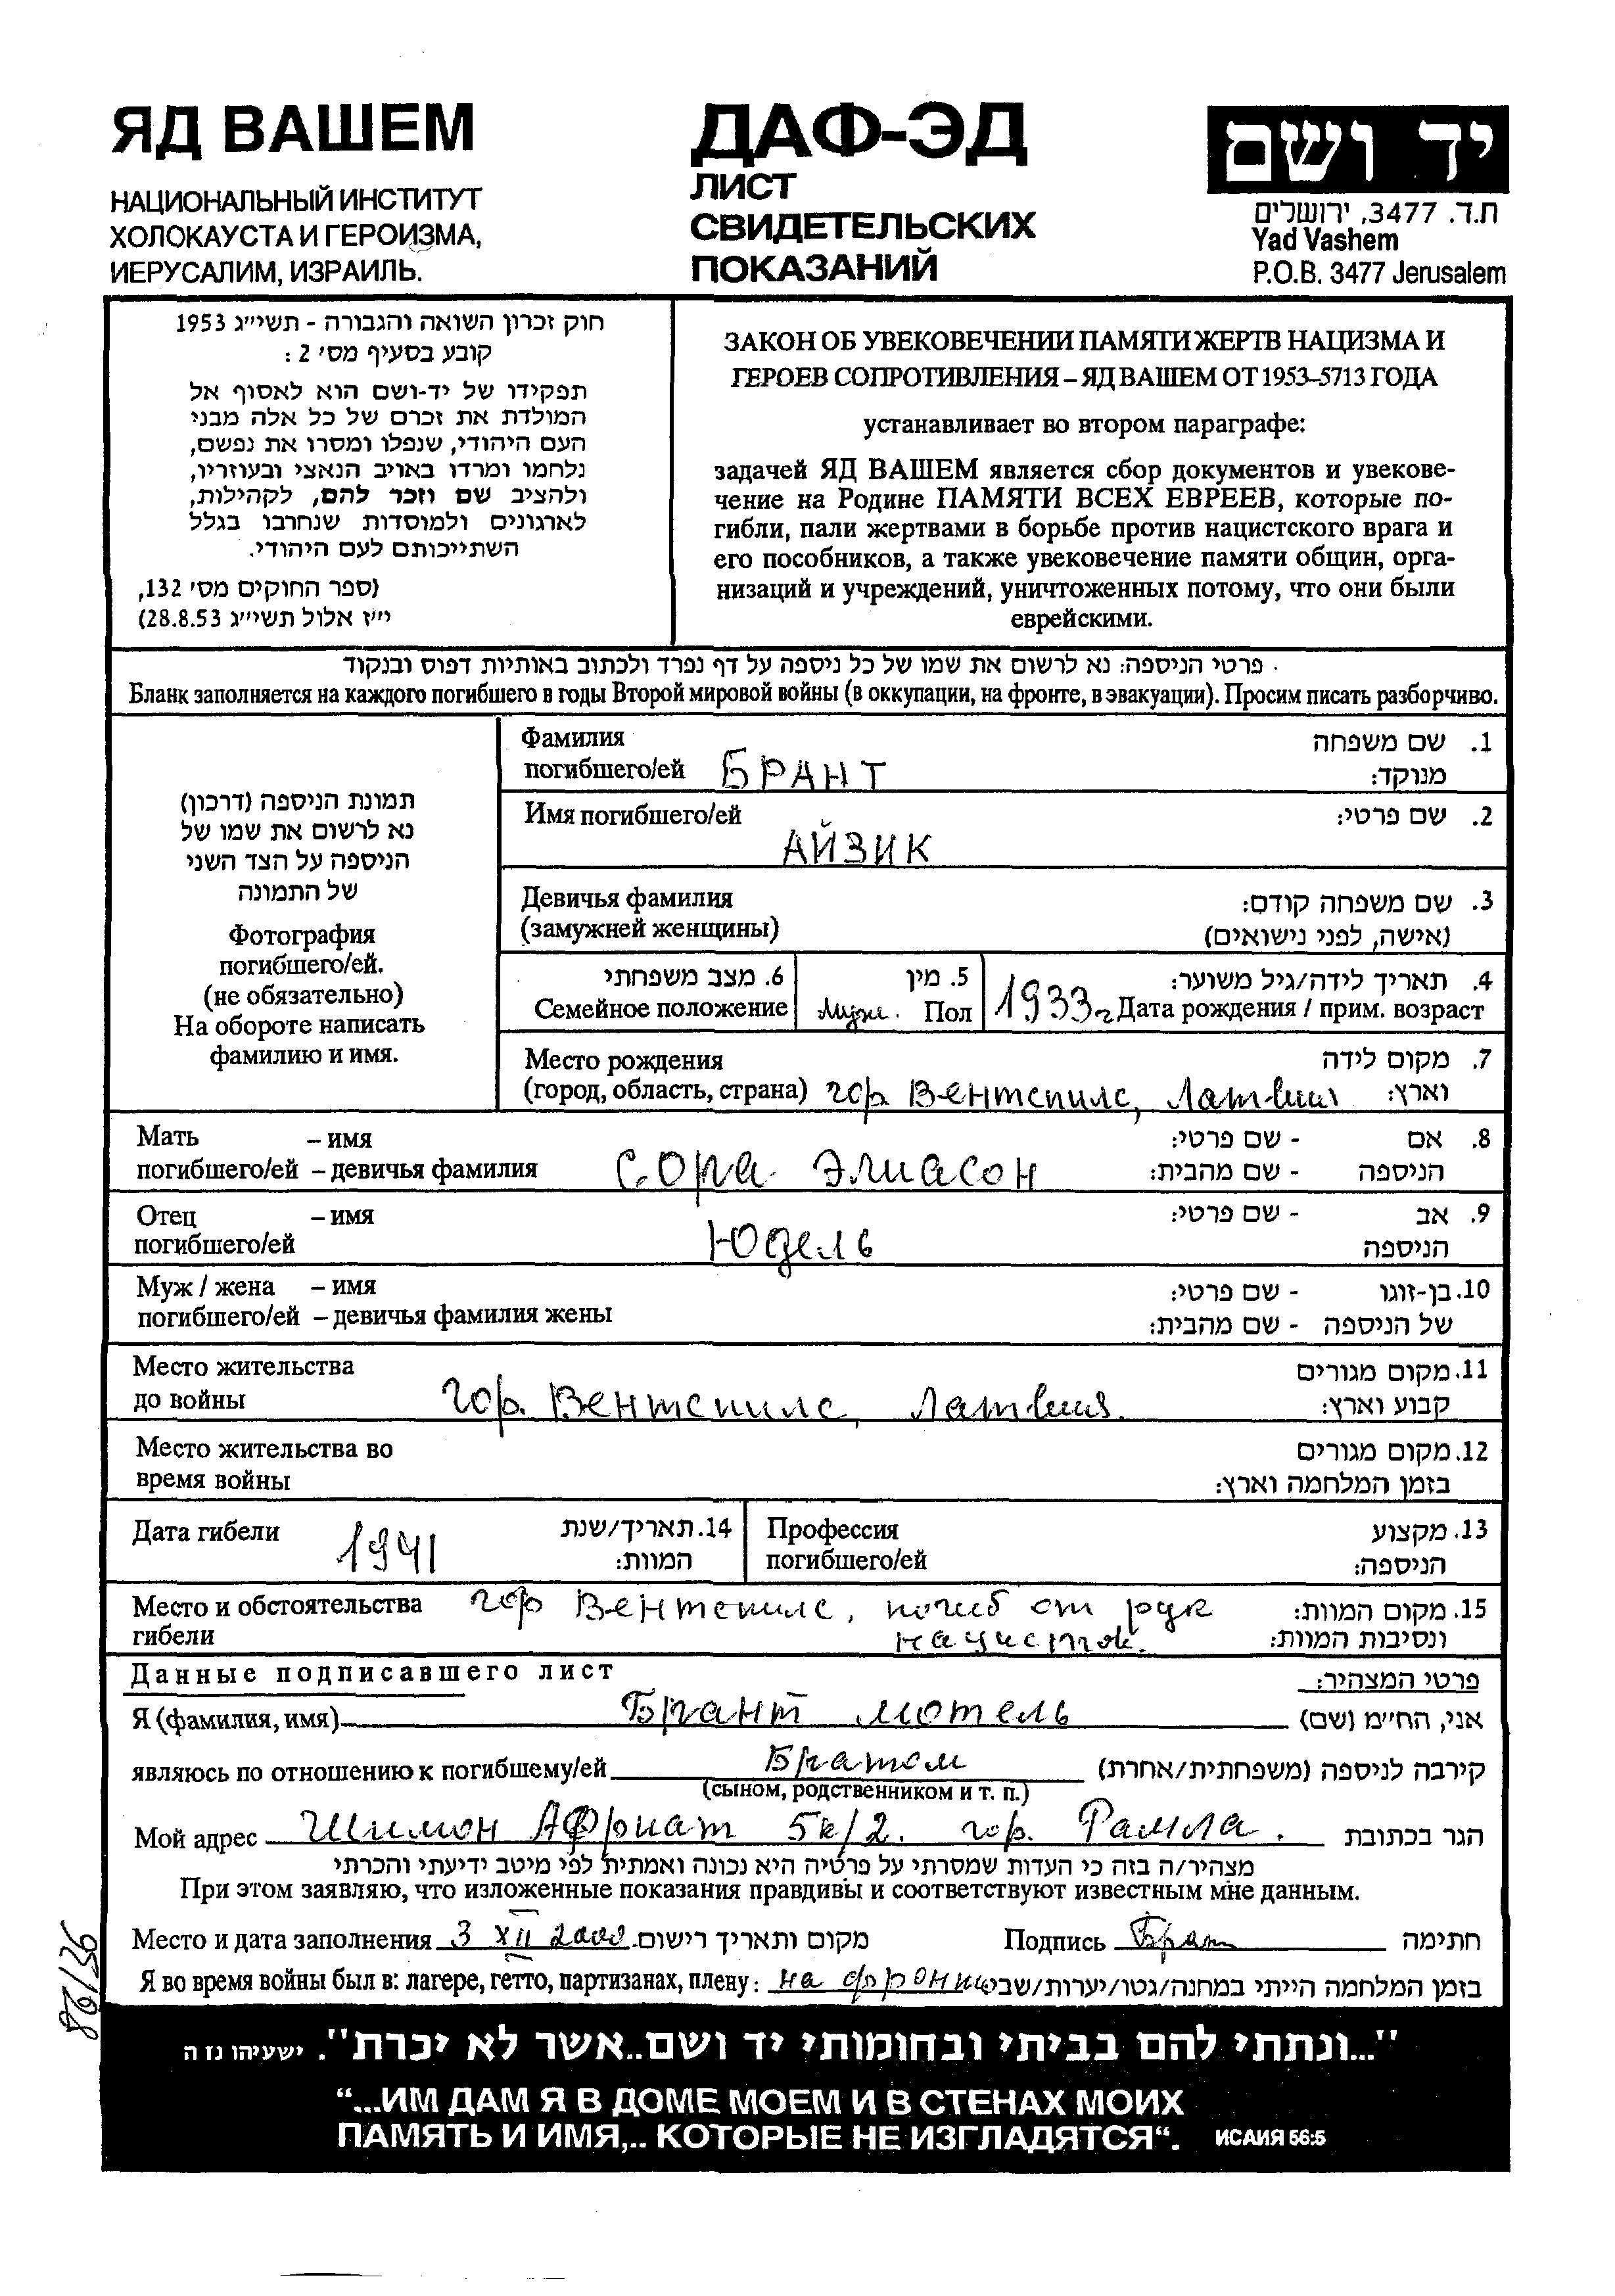 ЯД ВАШЕМ
НАЦИОНАЛЬНЫЙ ИНСТИТУТ
ХОЛОКАУСТА И ГЕРОИЗМА,
ИЕРУСАЛИМ, ИЗРАИЛЬ.
ДАФ-ЭД
ЛИСТ
СВИДЕТЕЛЬСКИХ
ПОКАЗАНИЙ
יד ושם
ת.ד. 3477, ירושלים
Yad Vashem
P.O.B. 3477 Jerusalem
חוק זכרון השואה והגבורה - תשי״ג 1953
קובע בסעיף מס׳ 2 :
תפקידו של יד-ושם הוא לאסוף אל
המולדת את זכרם של כל אלה מבני
העם היהודי, שנפלו ומסרו את נפשם,
נלחמו ומרדו באויב הנאצי ובעוזריו,
ולהציב שם וזכר להם, לקהילות,
לארגונים ולמוסדות שנחרבו בגלל
השתייכותם לעם היהודי.
(ספר החוקים מס׳ 132,
י״ז אלול תשי״ג 28.8.53)
ЗАКОН ОБ УВЕКОВЕЧЕНИИ ПАМЯТИ ЖЕРТВ НАЦИЗМА И
ГЕРОЕВ СОПРОТИВЛЕНИЯ – ЯД ВАШЕМ ОТ 1953–5713 ГОДА
устанавливает во втором параграфе:
задачей ЯД ВАШЕМ является сбор документов и увекове-
чение на Родине ПАМЯТИ ВСЕХ ЕВРЕЕВ, которые по-
гибли, пали жертвами в борьбе против нацистского врага и
его пособников, а также увековечение памяти общин, орга-
низаций и учреждений, уничтоженных потому, что они были
еврейскими.
פרטי הניספה: נא לרשום את שמו של כל ניספה על דף נפרד ולכתוב באותיות דפוס ובנקוד
Бланк заполняется на каждого погибшего в годы Второй мировой войны (в оккупации, на фронте, в эвакуации). Просим писать разборчиво.
תמונת הניספה (דרכון)
נא לרשום את שמו של
הניספה על הצד השני
של התמונה
Фотография
погибшего/ей.
(не обязательно)
На обороте написать
фамилию и имя.
Фамилия 1. שם משפחה
погибшего/ей БРАНТ מנוקד:
Имя погибшего/ей 2. שם פרטי:
АЙЗИК
Девичья фамилия 3. שם משפחה קודם:
(замужней женщины) (אישה, לפני נישואים)
6. מצב משפחתי 5. מין 4. תאריך לידה/גיל משוער:
Семейное положение Муж. Пол 1933г Дата рождения / прим. возраст
Место рождения 7. מקום לידה
(город, область, страна) гор. Вентспилс, Латвия וארץ:
Мать – имя 8. אם - שם פרטי:
погибшего/ей – девичья фамилия Сора Элиасон הניספה - שם מהבית:
Отец – имя 9. אב - שם פרטי:
погибшего/ей Юдель הניספה
Муж / жена – имя 10. בן-זוגו - שם פרטי:
погибшего/ей – девичья фамилия жены של הניספה - שם מהבית:
Место жительства 11. מקום מגורים
до войны гор. Вентспилс, Латвия. קבוע וארץ:
Место жительства во 12. מקום מגורים
время войны בזמן המלחמה וארץ:
Дата гибели 1941 14. תאריך/שנת
המוות:
Профессия 13. מקצוע
погибшего/ей הניספה:
Место и обстоятельства гор Вентспилс, погиб от рук 15. מקום המוות:
гибели нацистов. ונסיבות המוות:
Данные подписавшего лист פרטי המצהיר:
Я (фамилия, имя) Брант Мотель אני, הח״מ (שם)
являюсь по отношению к погибшему/ей Братом קירבה לניספה (משפחתית/אחרת)
(сыном, родственником и т. п.)
Мой адрес Шимон Африат 5к/2. гор. Рамла. הגר בכתובת
מצהיר/ה בזה כי העדות שמסרתי על פרטיה היא נכונה ואמתית לפי מיטב ידיעתי והכרתי
При этом заявляю, что изложенные показания правдивы и соответствуют известным мне данным.
Место и дата заполнения 3 XII 2000 מקום ותאריך רישום Подпись Брант חתימה
Я во время войны был в: лагере, гетто, партизанах, плену: на фронте בזמן המלחמה הייתי במחנה/גטו/יערות/שבי
86/36
"...ונתתי להם בביתי ובחומותי יד ושם..אשר לא יכרת". ישעיהו נז ה
“...ИМ ДАМ Я В ДОМЕ МОЕМ И В СТЕНАХ МОИХ
ПАМЯТЬ И ИМЯ,.. КОТОРЫЕ НЕ ИЗГЛАДЯТСЯ“. ИСАИЯ 56:5